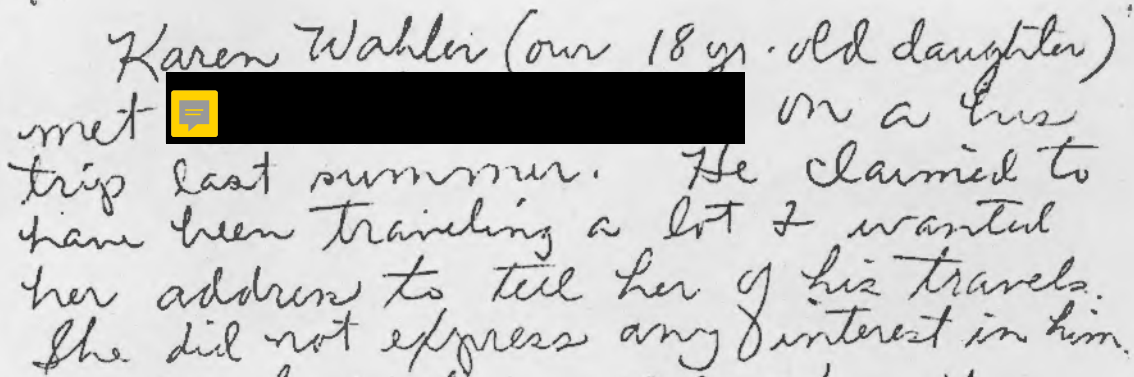 Karen Wahler (our 18 yr. old daughter)
met on a bus
trip last summer. He claimed to
have been traveling a lot & wanted
her address to tell her of his travels.
She did not express any interest in him.